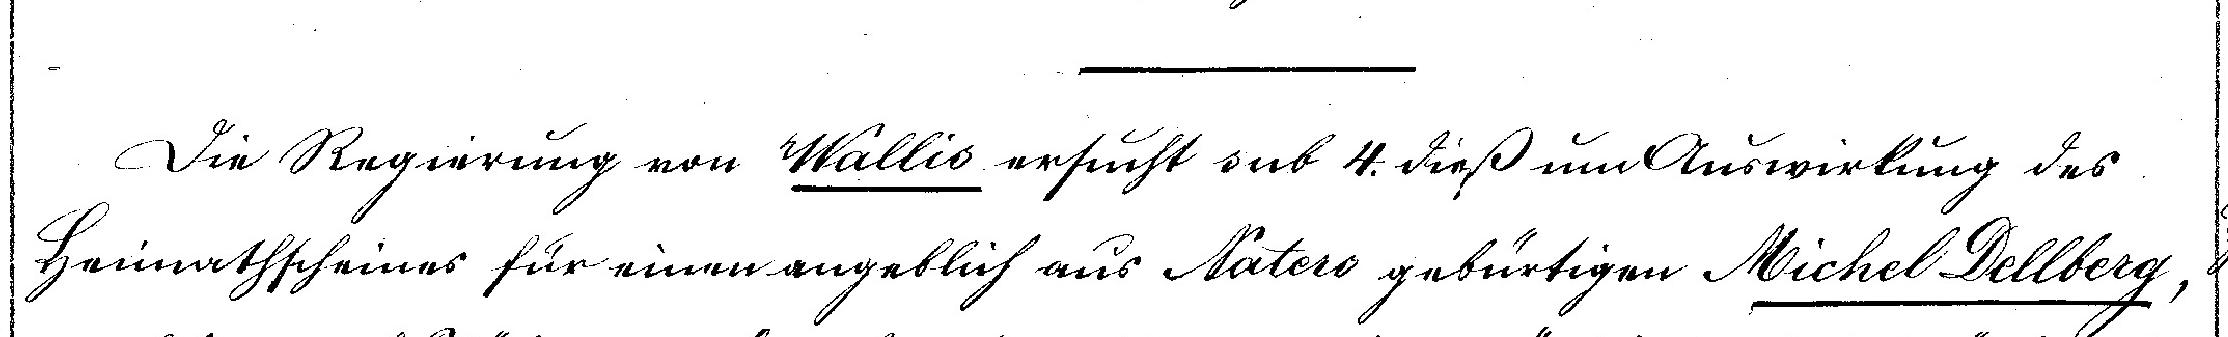 Die Regierung von Wallis ersucht sub 4. dieß um Auswirkung des
Heimathscheines für einen angeblich aus Naters gebürtigen Michel Dellberg,